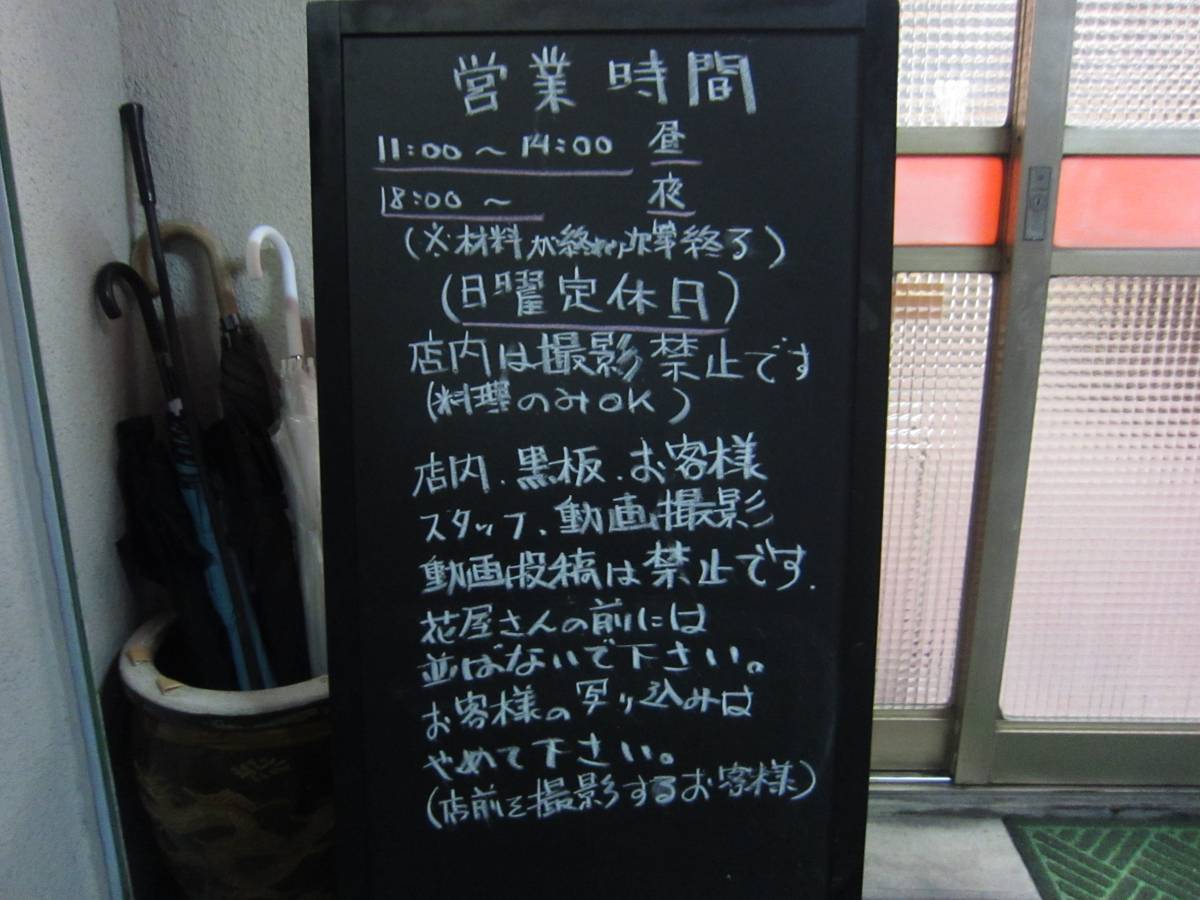 営業時間
11:00～14:00 昼
18:00～ 夜
(※材料が終わり次第終る)
(日曜定休日)
店内は撮影禁止です
(料理のみOK)
店内、黒板、お客様
スタッフ、動画撮影
動画投稿は禁止です.
花屋さんの前には
並ばないで下さい。
お客様の写り込みは
やめて下さい。
(店前を撮影するお客様)